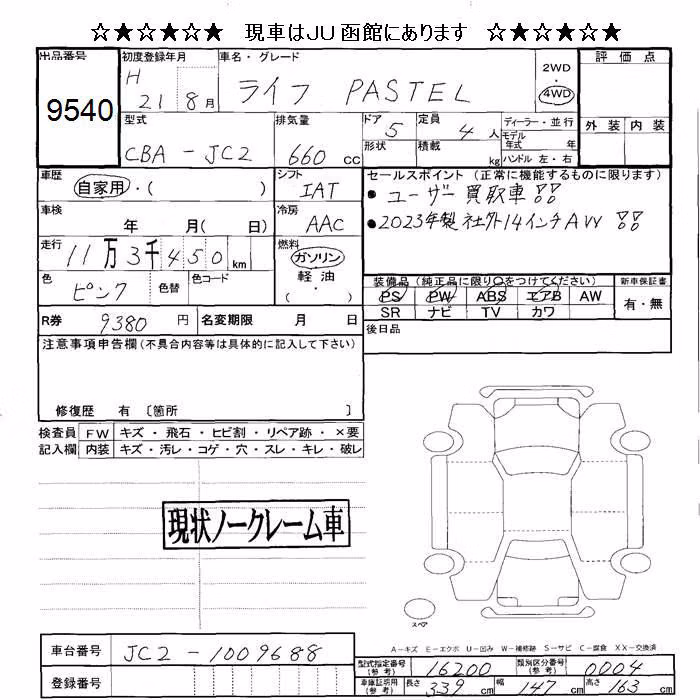 ☆★☆★☆★ 現車はJU函館にあります ★☆★☆★☆
出品番号 初度登録年月 車名・グレード 評価点
9540 H 21 8月 ライフ PASTEL 2WD 4WD
型式 排気量 ドア 5 定員 4人 ディーラー・並行 外装 内装
モデル年式 年
CBA-JC2 660cc 形状 積載 kg ハンドル 左・右
車歴 シフト セールスポイント(正常に機能するものに限ります)
自家用・( ) IAT ●ユーザー買取車!!
車検 年 月( 日) 冷房 AAC ●2023年製社外14インチAW!!
走行 11万3千450km 燃料 ガソリン
軽油
・( )
色 ピンク 色替 色コード
装備品(純正品に限り○をつけてください) 新車保証書
PS PW ABS エアB AW 有・無
SR ナビ TV カワ
R券 9380円 名変期限 月 日 後日品
注意事項申告欄(不具合内容等は具体的に記入して下さい)
修復歴 有 〔箇所 〕
検査員 FW キズ・飛石・ヒビ割・リペア跡・×要
記入欄 内装 キズ・汚レ・コゲ・穴・スレ・キレ・破レ
現状ノークレーム車
スペア
A-キズ E-エクボ U-凹み W-補修跡 S-サビ C-腐食 XX-交換済
車台番号 JC2-1009688
型式指定番号(参考) 16200 類別区分番号(参考) 0004
登録番号
車庫証明用(参考) 長さ 339cm 幅 147cm 高さ 163cm